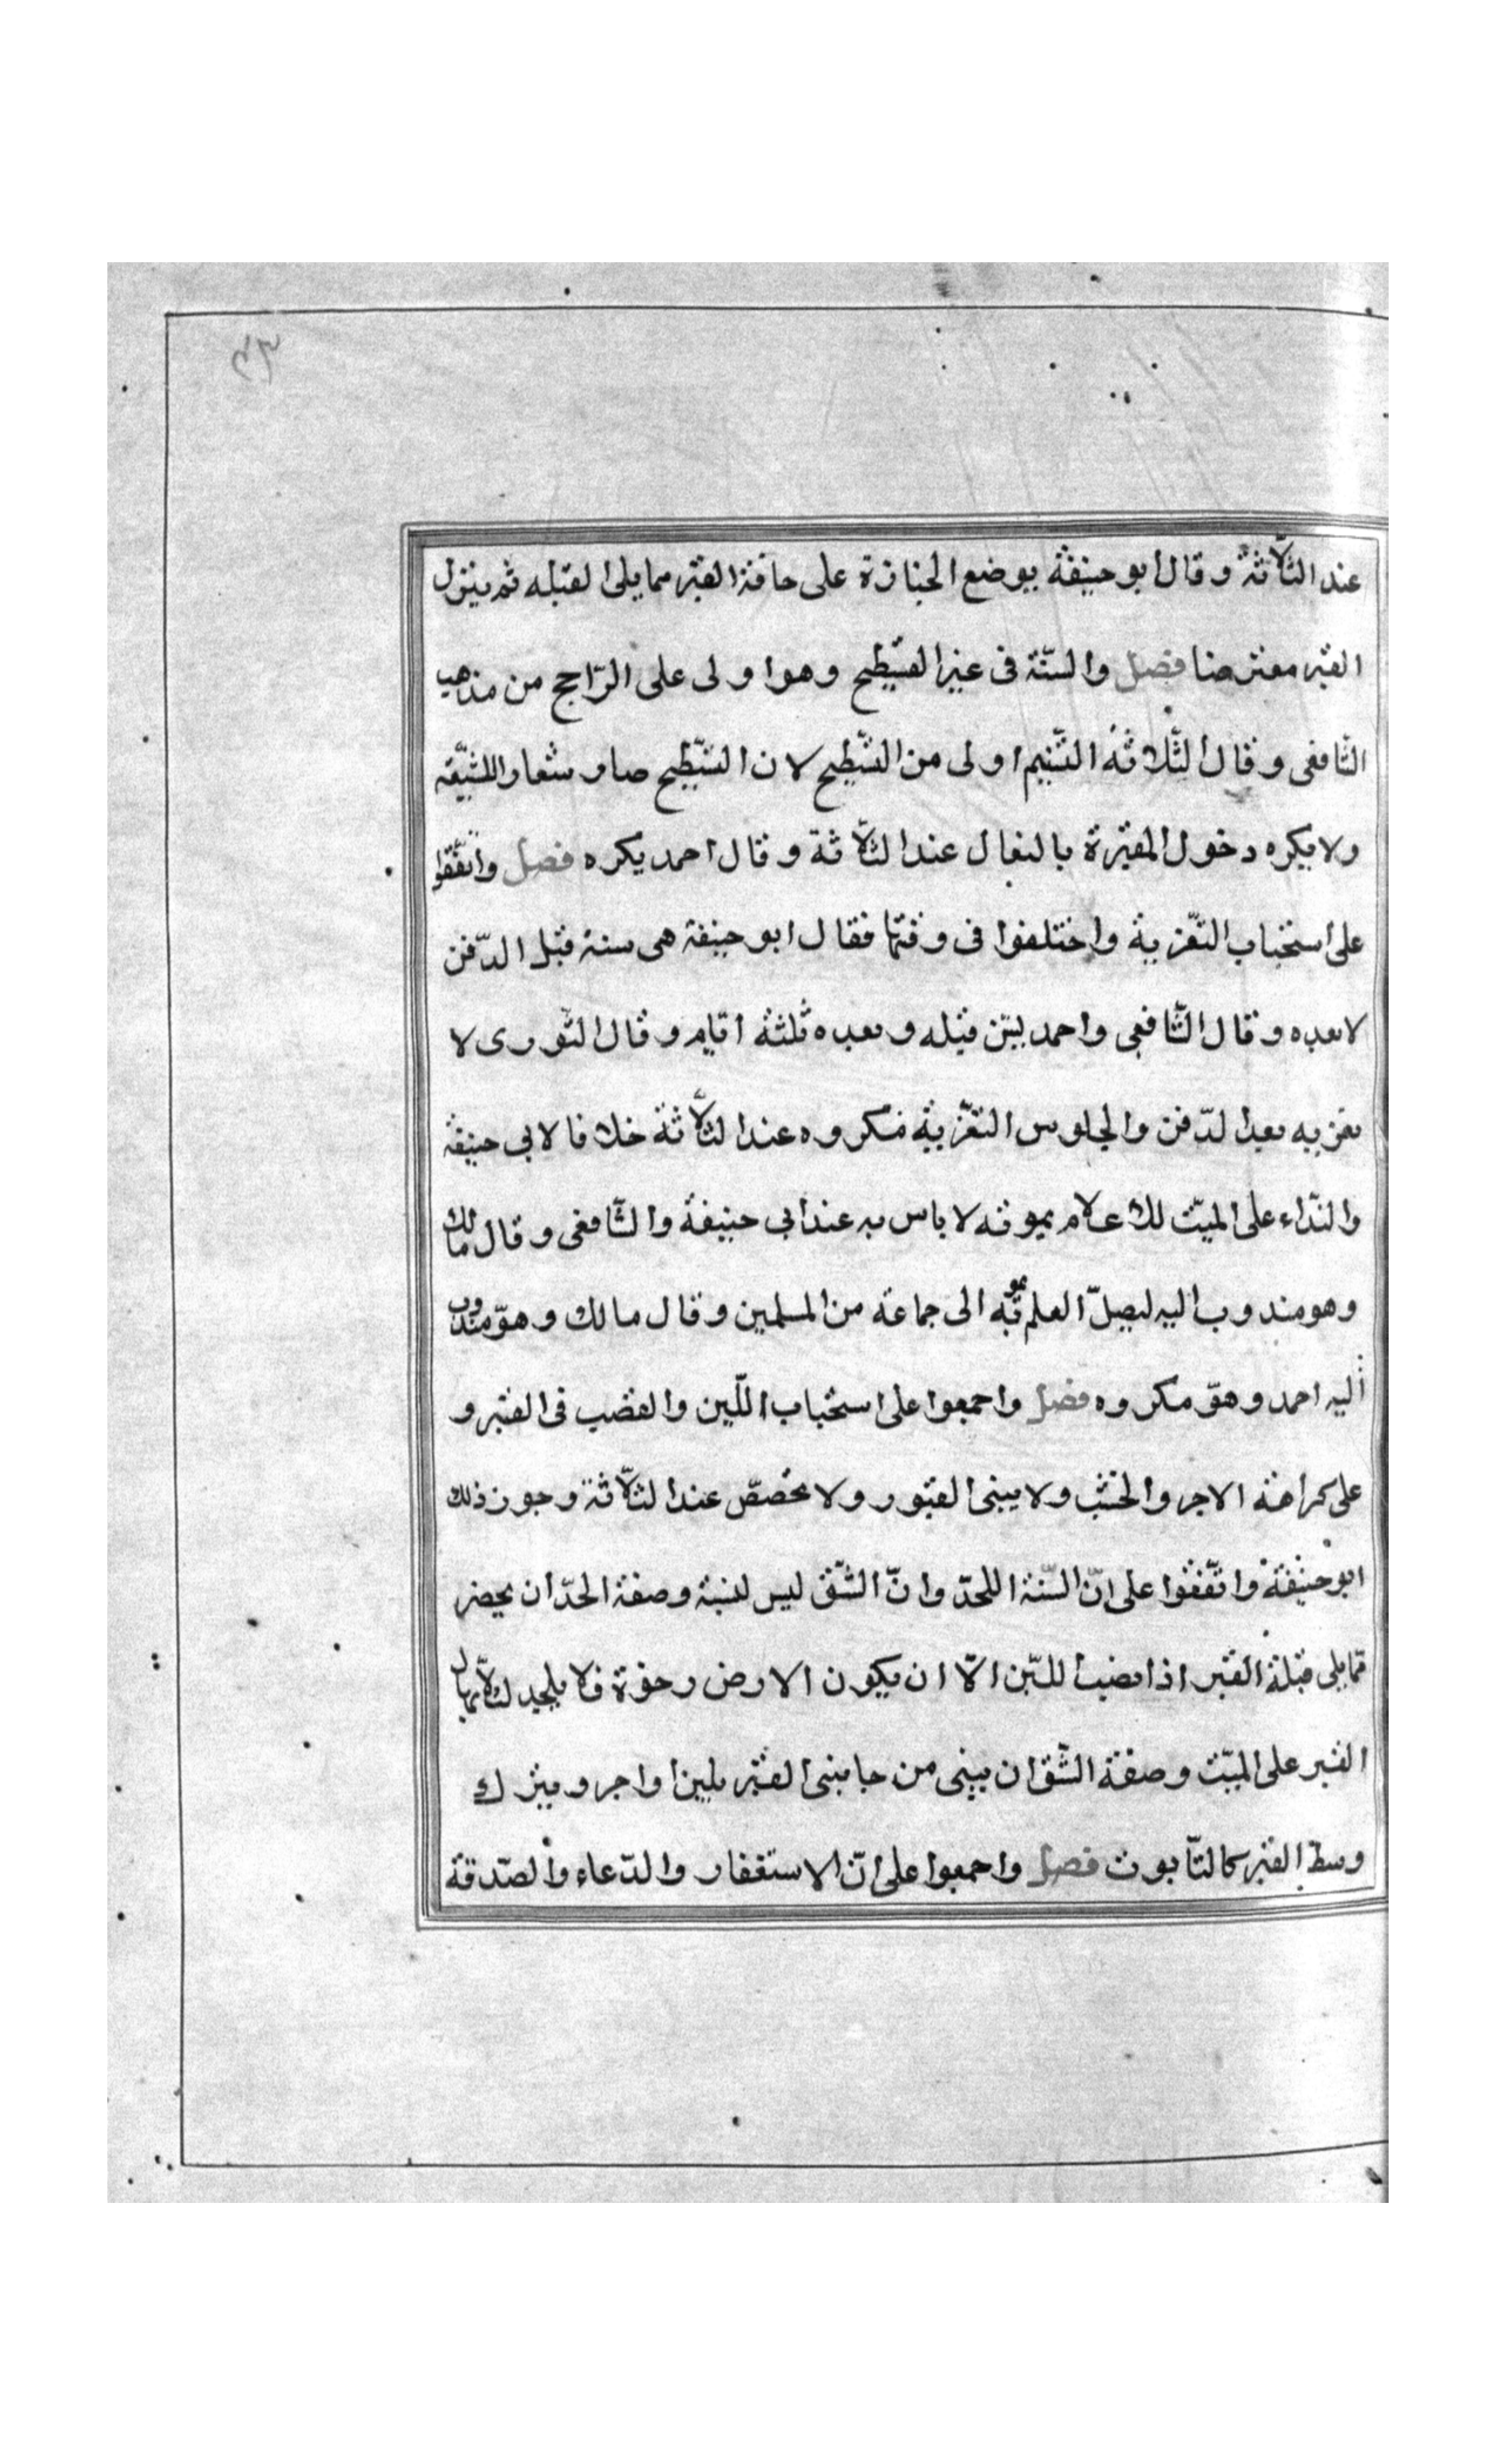 ٤٣
عند الثلاثة وقال ابو حنيفة يوضع الجنازة على حافة القبر مما يلى القبله ثم ينزل
القبر معترضا فصل والسنّة فى غير التسطيح وهوا ولى على الرّاجح من مذهب
الشافعى وقال الثلاثة التّنيم اولى من التسّطيح لان التسّطيح صار شعار اللشيّعة
ولا يكره دخول المقبرة بالنعال عند الثلاثة وقال احمد يكره فصل واتّفقوا
على استحباب التعّزية واختلفوا فى وقتها فقال ابو حنيفة هى سنة قبل الدّفن
لا بعده وقال الشّافعى واحمد ليسّن قبله وبعده ثلثة ايّام وقال الثّورى لا
تعزيه بعد الدّفن والجلوس التعّزية مكروه عند الثلاثة خلافا لابى حنيفة
والندّاء على الميّت للاعلام بموته لا باس به عند ابى حنيفة والشّافعى وقال مالك
وهو مندوب اليه ليصلّ العلم بموته الى جماعة من المسلمين وقال مالك وهوّ مندوب
اليه احمد وهوّ مكروه فصل واجمعوا على استحباب اللّبن والقضب فى القبر و
على كراهة الاجر والخشب ولا يبنى القبور ولا يخصصّ عند الثلاّثة وجوز ذلك
ابو حنيفة واتّفقوا على انّ السّنة اللحدّ وانّ الشّق ليس لسنبة وصفة الحدّ ان يحضر
ممّا يلى قبلة القبر اذا نصب اللّبن الاّ ان يكون الارض رخوة فلا يلحد لئلا ينهال
القبر على الميّت وصفة الشّق ان يبنى من جابنى القبر بلبن اواجر ويترك
وسط القبر كالتّابوت فصل واجمعوا على انّ الاستغفار والدّعاء والصّدقة